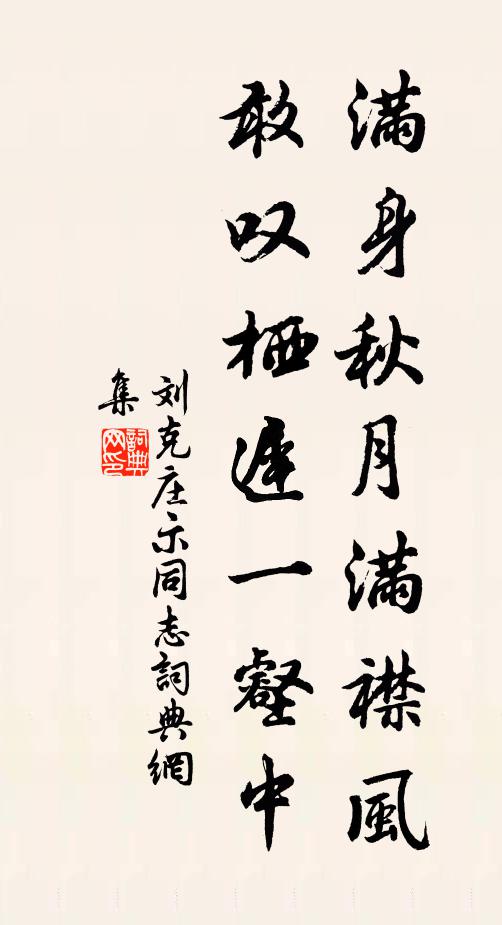 满身秋月满襟風
敢叹栖遲一壑中
刘克庄示同志詞典網
集
詞典
网印